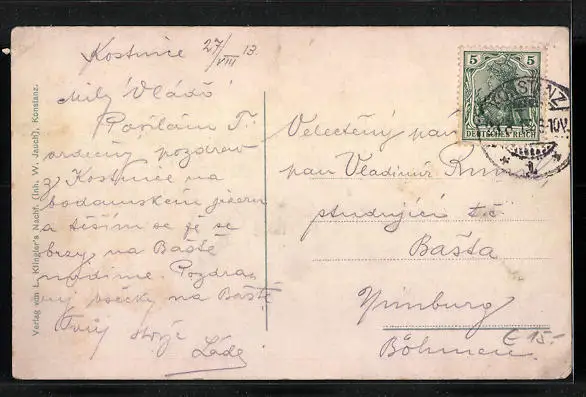 Kostnice 27/VIII 13.
Milý Vládo
Posílám Ti
srdečný pozdrav
z Kostnice na
bodamském jezeru
a těším se že se
brzy na Baště
uvidíme. Pozdra-
vuj všecky na Baště
Tvůj strýc
Láďa
Velectěný pán
pan Vladimír
studující t.č.
Bašta
Nimburg
Böhmen.
€ 15.-
5 5
DEUTSCHES REICH
KONSTANZ
6-10V.
Verlag von L. Klingler's Nachf. (Inh. W. Jauch), Konstanz.